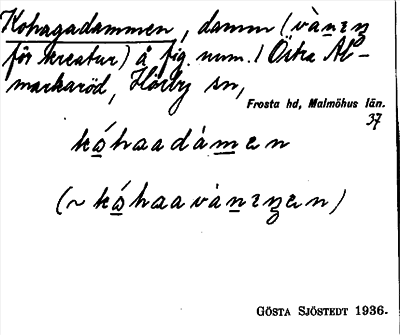 Kohagadammen, damm (vànıŋ
för kreatur) å fig. num. 1 Östra Ab-
markaröd, Hörby sn,
Frosta hd, Malmöhus län.
37
kóhaadàmen
(~ kóhaavànıŋen)
GÖSTA SJÖSTEDT 1936.